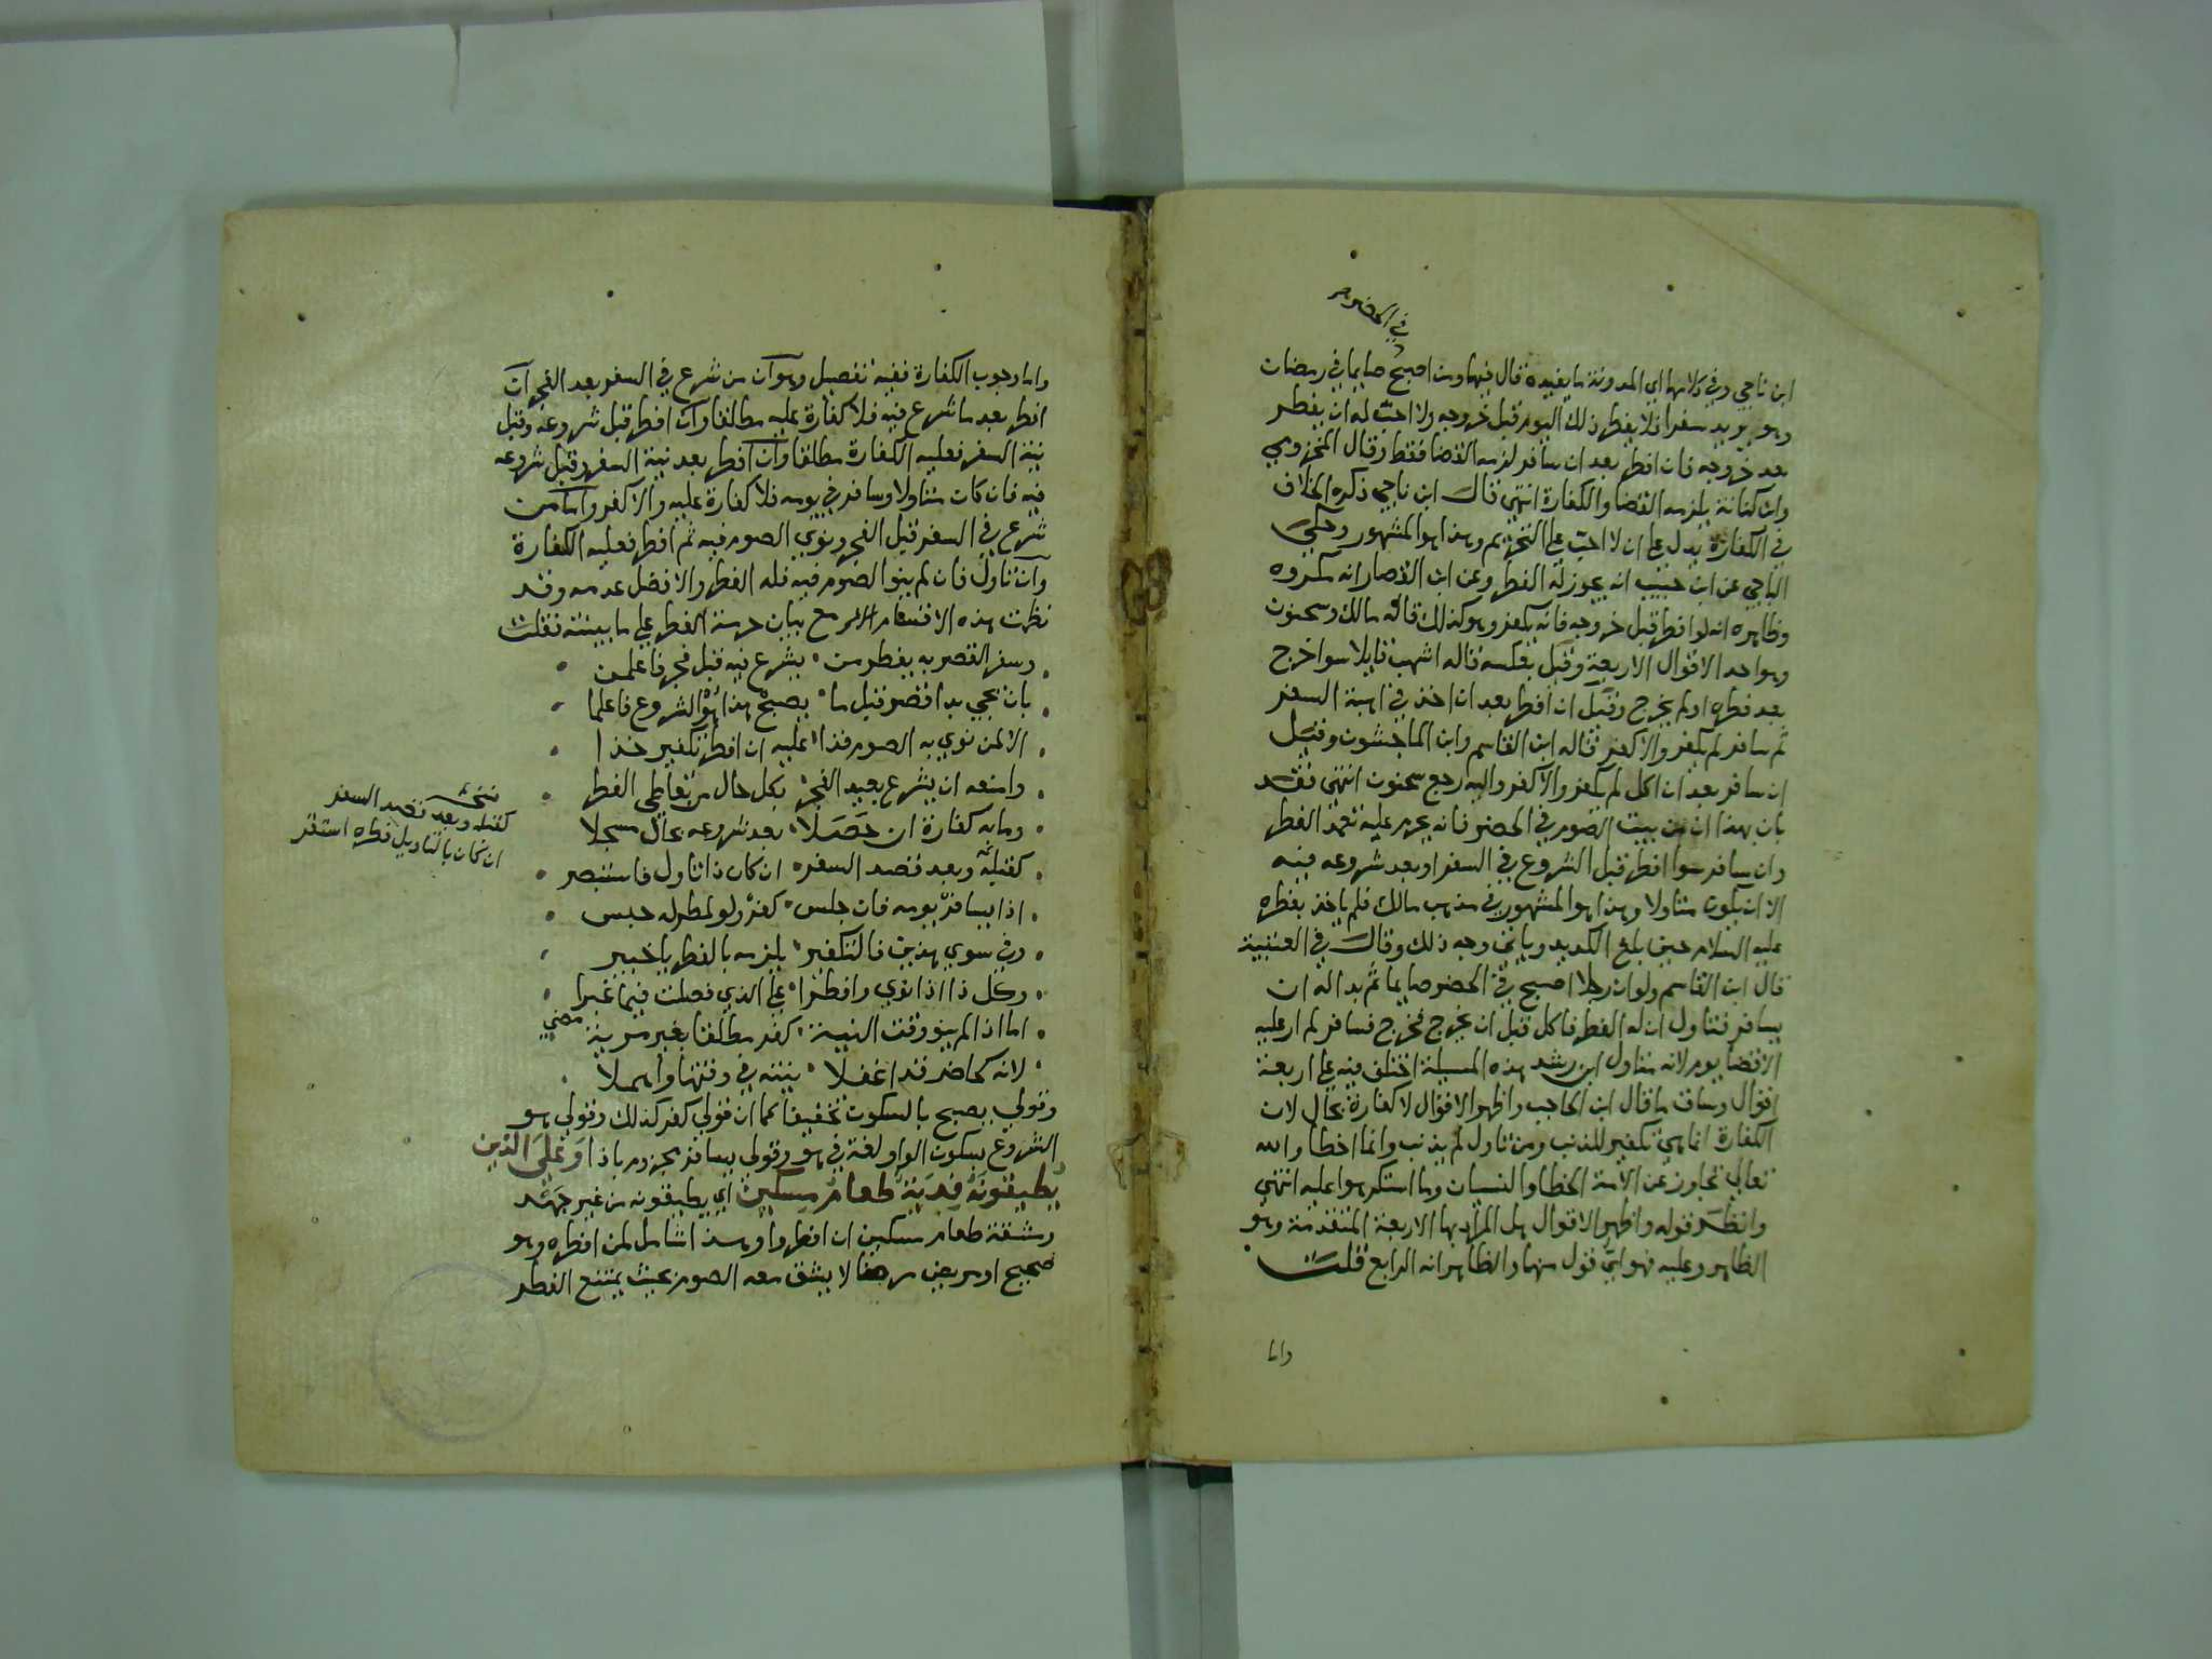 في الحضر
ابن ناجي وفي كلامها اي المدونة ما يفيده قال فيها ومن اصبح صايما في رمضان
وهو يريد سفرا فلا يفطر ذلك اليوم قبل خروجه ولا احب له ان يفطر
بعد خروجه فان افطر بعد ان سافر لزمه القضا فقط وقال المخزومي
وابن كنانة يلزمه القضا والكفارة انتهى قال ابن ناجي ذكره الخلاف
في الكفارة يدل على ان لا احب على التحريم وهذا هو المشهور وحكى
الباجي عن ابن حبيب انه يجوز له الفطر وعن ابن القصار انه مكروه
وظاهره انه لو افطر قبل خروجه فانه يكفر وهو كذلك قاله مالك وسحنون
وهو احد الاقوال الاربعة وقيل بعكسه قاله اشهب قايلا سوا خرج
بعد فطره او لم يخرج وقيل ان افطر بعد ان اخذ في اهبة السفر
ثم سافر لم يكفر والا كفر قاله ابن القاسم وابن الماجشون وقيل
ان سافر بعد ان اكل لم يكفر والا كفر واليه رجع سحنون انتهى فقد
بان بهذا ان من بيت الصوم في الحضر فانه يحرم عليه تعمد الفطر
وان سافر سوا افطر قبل الشروع في السفر او بعد شروعه فيه
الا ان يكون متاولا وهذا هو المشهور في مذهب مالك فلم ياخذ بفطره
عليه السلام حين بلغ الكديد وياتي وجه ذلك وقال في العتبية
قال ابن القاسم ولو ان رجلا اصبح في الحضر صايما ثم بدا له ان
يسافر فتاول ان له الفطر فاكل قبل ان يخرج فخرج فسافر لم ار عليه
الا قضا يوم لانه متاول ابن رشد هذه المسيلة اختلف فيه على اربعة
اقوال وساق ما قال ابن الحاجب واظهر الاقوال لا كفارة بحال لان
الكفارة انما هي تكفير للذنب ومن تاول لم يذنب وانما اخطا والله
تعالى تجاوز عن الامة الخطا والنسيان وما استكرهوا عليه انتهى
وانظر قوله واظهر الاقوال هل المراد بها الاربعة المتقدمة وهو
الظاهر وعليه فهو اي قول منها والظاهر انه الرابع قلت
واما
واما وجوب الكفارة ففيه تفصيل وهو ان من شرع في السفر بعد الفجر ان
افطر بعد ما شرع فيه فلا كفارة عليه مطلقا وان افطر قبل شروعه وقبل
نية السفر فعليه الكفارة مطلقا وان افطر بعد نية السفر وقبل شروعه
فيه فان كان متاولا وسافر في يومه فلا كفارة عليه والا كفر واما من
شرع في السفر قبل الفجر ونوى الصوم فيه ثم افطر فعليه الكفارة
وان تاول فان لم ينو الصوم فيه فله الفطر والافضل عدمه وقد
نظمت هذه الاقسام مع بيان حرمة الفطر على ما بينته فقلت
وسفر القصر به يفطر من يشرع فيه قبل فجر فاعلمن
بان يجي بدا قصر قبل ما يصبح هذا هو الشروع فاعلما
الا لمن نوى به الصوم فذا عليه ان افطر تكفير خذا
وامنعه ان يشرع بعيد الفجر بكل حال من تعاطي الفطر
وما به كفارة ان حصلا بعد شروعه بحال مسجلا
كقبله وبعد قصد السفر ان كان ذا تاول فاستبصر
اذا يسافر يومه فان جلس كفر ولو لمطر له حبس
وفي سوى هذين فالتكفير يلزمه بالفطر يا خبير
وكل ذا اذا نوى وافطرا على الذي فصلت فيما غبرا
اما اذا لم ينو وقت النية كفر مطلقا بغير مرية
لانه كحاضر قد اغفلا نيته في وقتها واهملا
وقولي يصبح بالسكون تخفيفا كما ان قولي كفر كذلك وقولي هو
الشروع بسكون الواو لغة في هو وقولي يسافر بجزوم باذا وعلى الذين
يطيقونه فدية طعام مسكين اي يطيقونه من غير جهد
ومشقة طعام مسكين ان افطروا وهذا شامل لمن افطره وهو
صحيح او مريض مرضا لا يشق معه الصوم بحيث يمتنع الفطر
نسخة
كقبله وبعد قصد السفر
ان كان بالتاويل فطره استقر